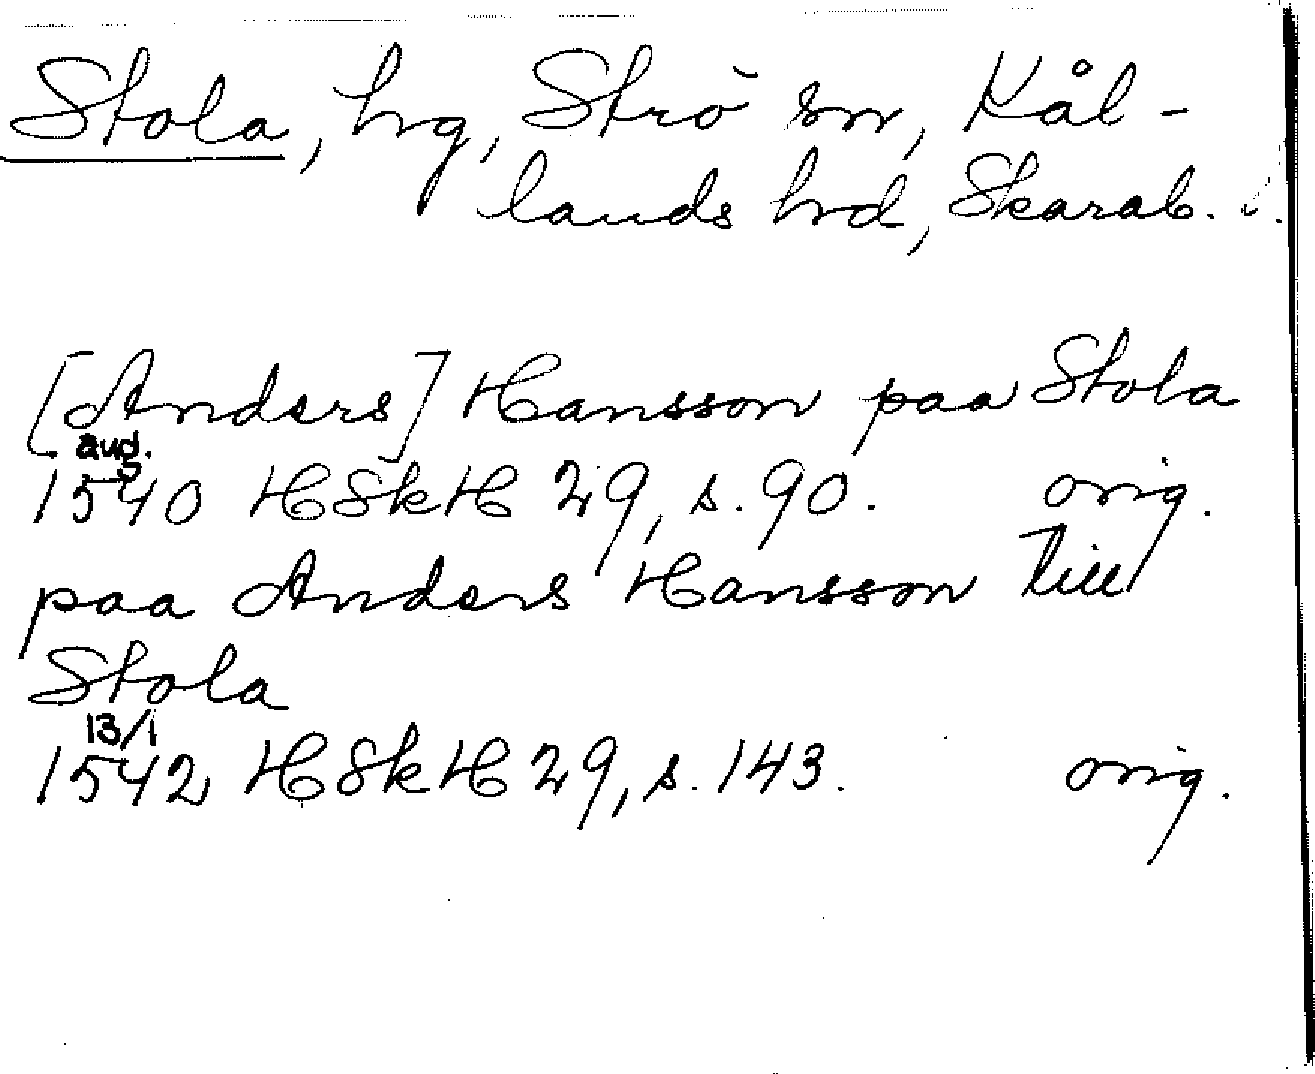 Stola, hg, Strö sn, Kål-
lands hd, Skarab. l.
[Anders] Hansson paa Stola
aug.
1540 HSkH 29, s. 90. orig.
paa Anders Hansson till
Stola
13/1
1542 HSkH 29, s. 143. orig.